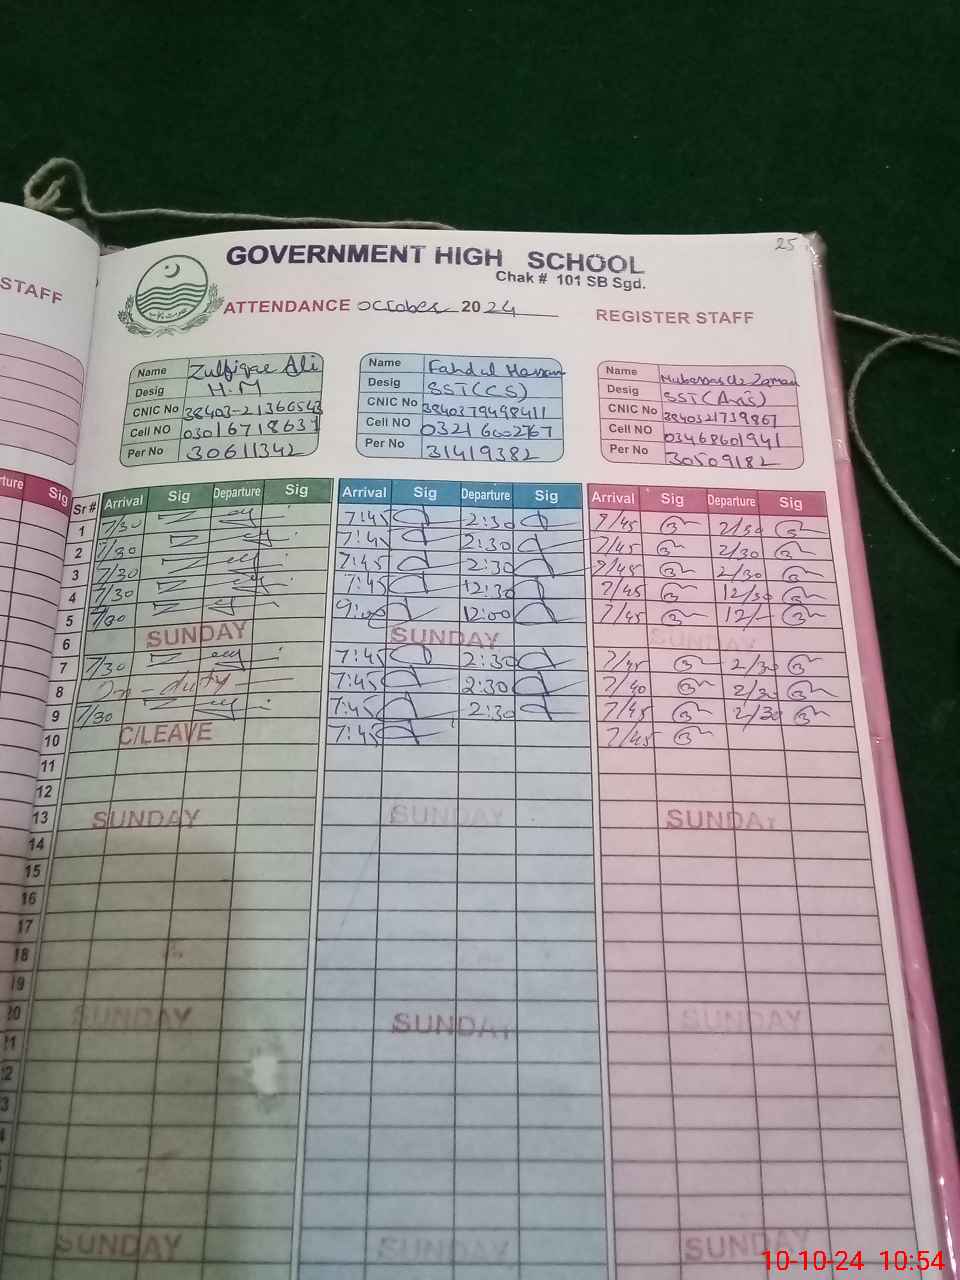 25
STAFF
GOVERNMENT HIGH SCHOOL
Chak # 101 SB Sgd.
ATTENDANCE October 2024 REGISTER STAFF
Name Zulfiqar Ali
Desig H.M
CNIC No 38403-21366543
Cell NO 03016718637
Per No 30611342
Name Fahd ul Hassan
Desig SST(CS)
CNIC No 3840379498411
Cell NO 03216602767
Per NO 31419382
Name Zaman
Desig SST
CNIC No 3840321739867
Cell NO 03468601941
Per No 30509182
rture Sig Sr # Arrival Sig Departure Sig Arrival Sig Departure Sig Arrival Sig Departure Sig
1 7/30 7:45 2:30 7/45 2/30
2 7/30 7:45 2:30 7/45 2/30
3 7/30 7:45 2:30 7/45 2/30
4 7/30 7:45 12:30 7/45 12/30
5 7/30 9:00 12:00 7/45 12/-
6 SUNDAY SUNDAY SUNDAY
7 7/30 7:45 2:30 7/45 2/30
8 On-duty 7:45 2:30 7/40 2/30
9 7/30 7:45 2:30 7/45 2/30
10 C/LEAVE 7:45 7/45
11
12
13 SUNDAY SUNDAY SUNDAY
14
15
16
17
18
19
20 SUNDAY SUNDAY SUNDAY
SUNDAY SUNDAY SUNDAY
10-10-24 10:54